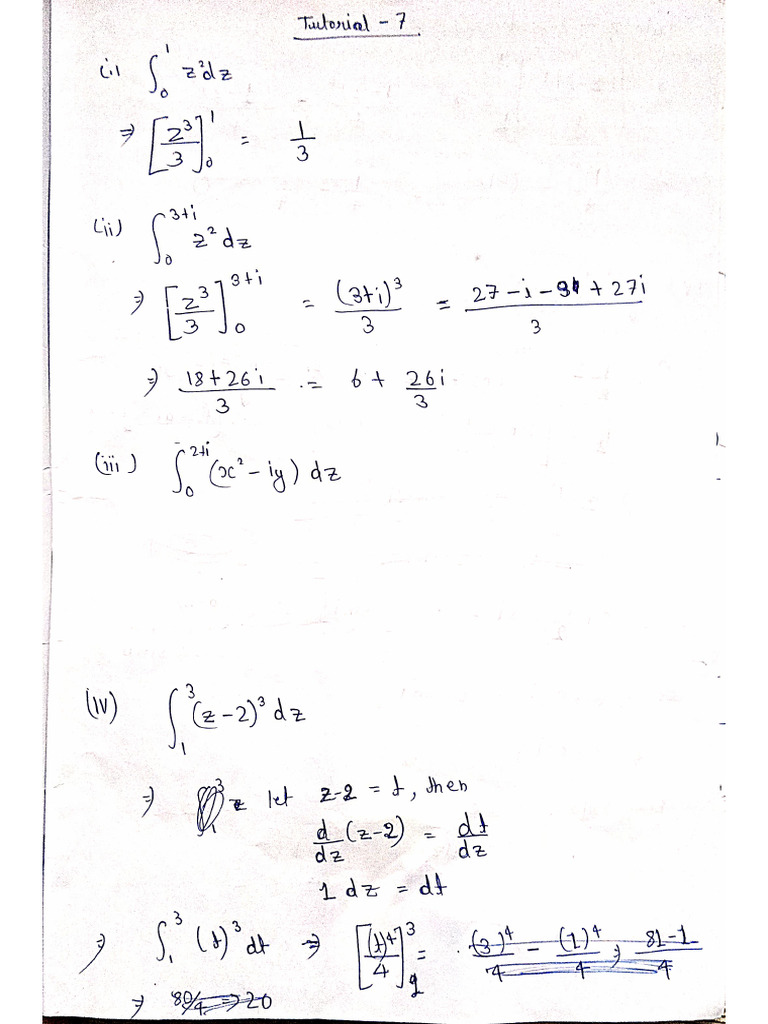 Tutorial - 7
(i) ∫₀¹ z²dz
⇒ [z³/3]₀¹ = 1/3
(ii) ∫₀³⁺ⁱ z² dz
⇒ [z³/3]₀³⁺ⁱ = (3+i)³/3 = (27 - i - 9 + 27i)/3
⇒ (18+26i)/3 = 6 + 26i/3
(iii) ∫₀²⁺ⁱ (x² - iy) dz
(iv) ∫₁³ (z-2)³ dz
⇒ let z-2 = t, then
d/dz (z-2) = dt/dz
1 dz = dt
⇒ ∫₁³ (t)³ dt ⇒ [(t)⁴/4]₁³ = (3)⁴/4 - (1)⁴/4 ⇒ (81-1)/4
⇒ 80/4 ⇒ 20